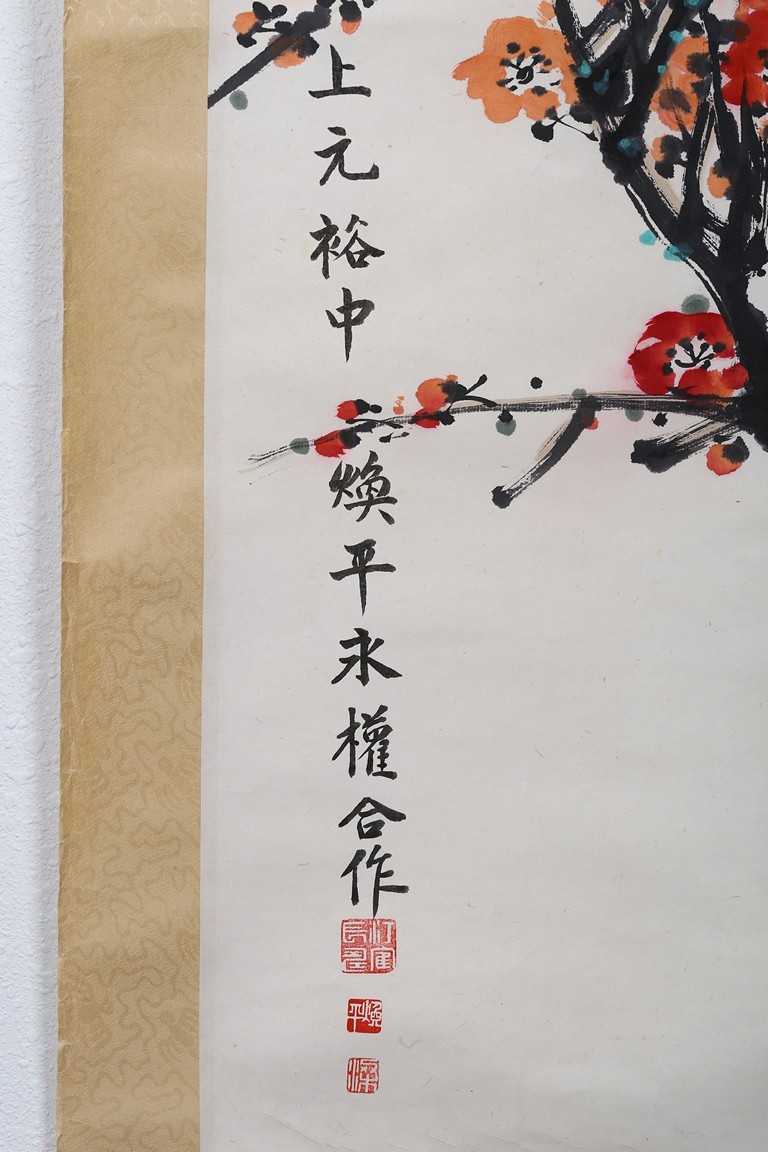 上元裕中
煥平永權合作
煥平